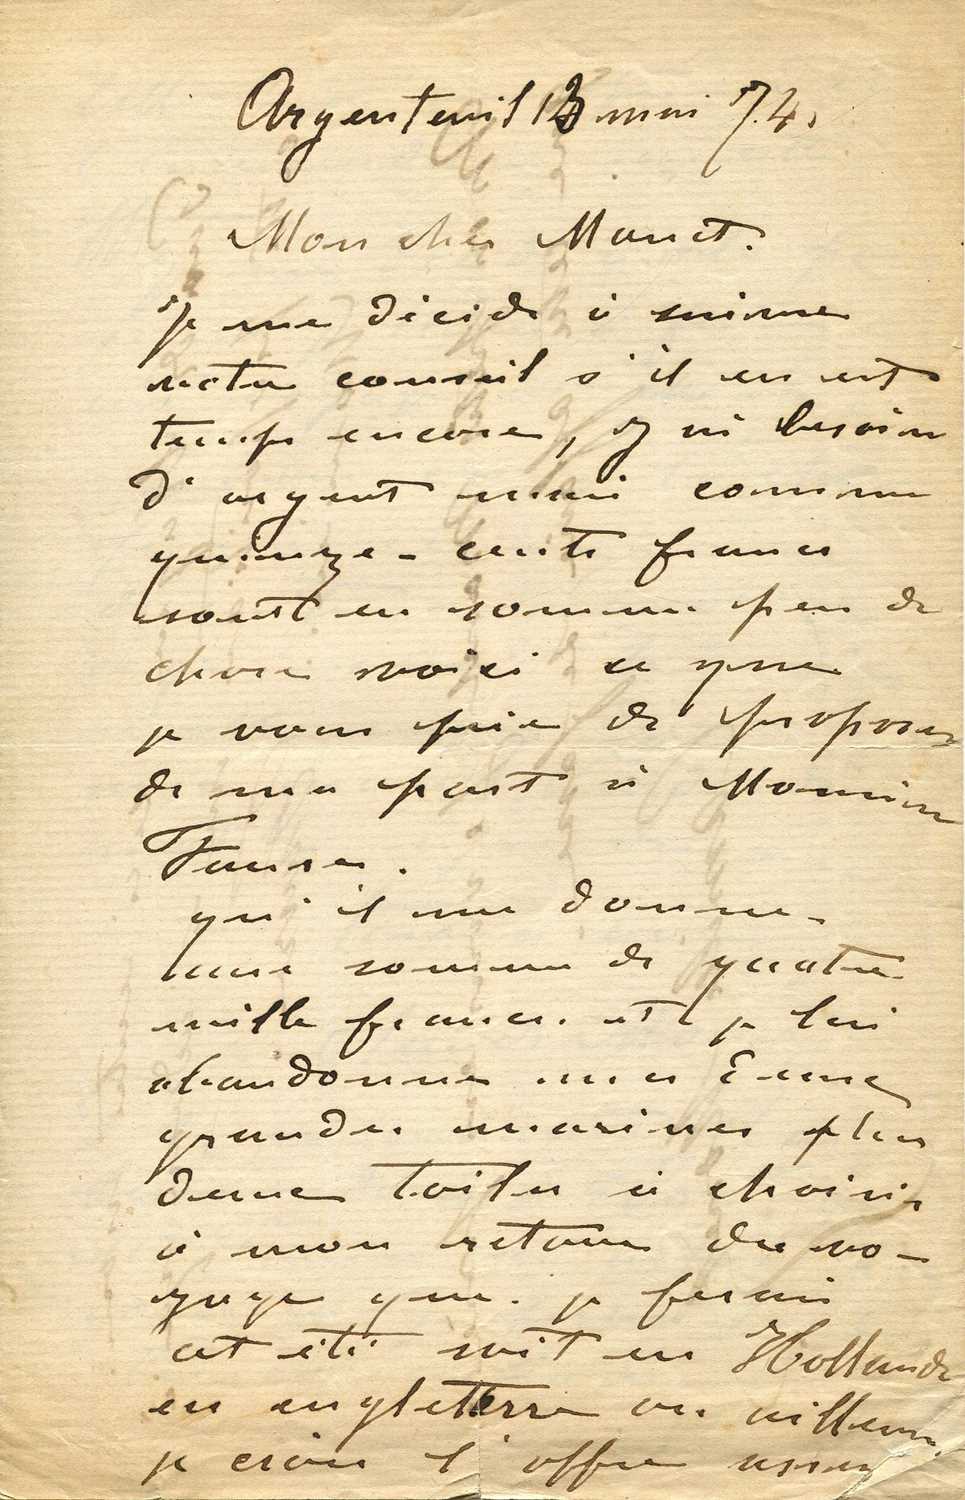 Argenteuil 13 mai 74.
Mon cher Manet.
Je me décide à suivre
votre conseil s'il en est
temps encore, j'ai besoin
d'argent mais comme
quinze-cents francs
sont en somme peu de
chose voici ce que
je vous prie de proposer
de ma part à Monsieur
Faure.
qu'il me donne
une somme de quatre
mille francs. et je lui
abandonne mes deux
grandes marines plus
deux toiles à choisir
à mon retour du vo-
yage que je ferai
cet été soit en Hollande
en engleterre ou ailleurs.
je crois l'offre assez